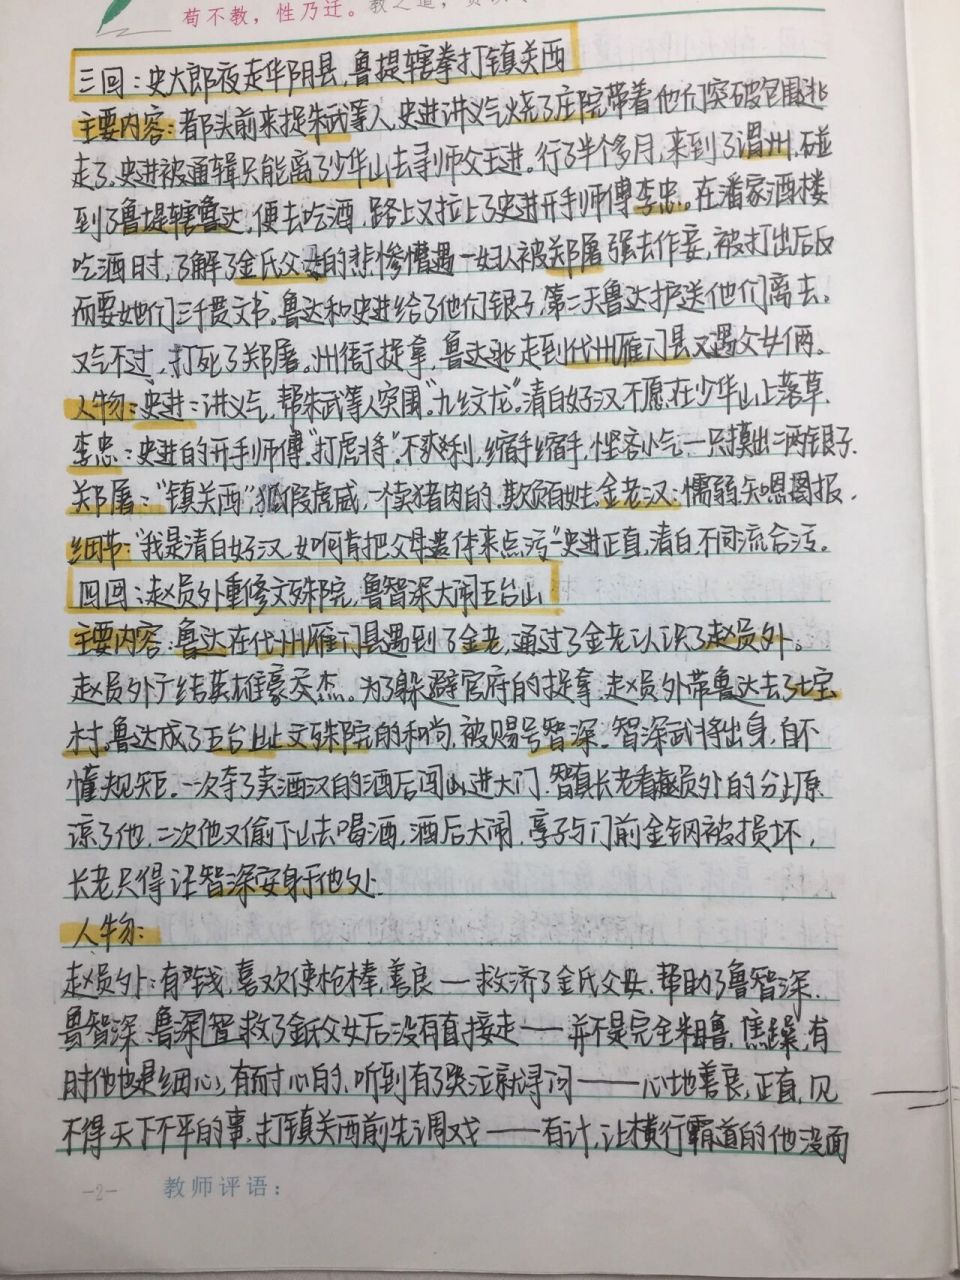 苟不教，性乃迁。教之道，贵以专
三回：史太郎夜走华阴县，鲁提辖拳打镇关西
主要内容：都头前来捉朱武等人，史进讲义气烧了庄院带着他们突破包围逃
走了。史进被通缉只能离了少华山去寻师父王进。行了半个多月，来到了渭州，碰
到了鲁提辖鲁达，便去吃酒，路上又拉上了史进开手师傅李忠。在潘家酒楼
吃酒时，了解了金氏父女的悲惨遭遇一妇人被郑屠强去作妾，被打出后反
而要她们三千贯文书。鲁达和史进给了他们银子，第二天鲁达护送他们离去。
又气不过，打死了郑屠。州衙捉拿，鲁达逃走到代州雁门县又遇父女俩。
人物：史进：讲义气，帮朱武等人突围。"九纹龙"。清白好汉不愿在少华山上落草，
李忠：史进的开手师傅"打虎将"，不爽利，缩手缩手，悭吝小气，一只摸出二两银子．
郑屠："镇关西"，狐假虎威，一个卖猪肉的，欺负百姓．金老汉：懦弱，知恩图报，
细节："我是清白好汉，如何肯把父母遗体来点污"史进正直，清白，不同流合污。
四回：赵员外重修文殊院，鲁智深大闹五台山
主要内容：鲁达在代州雁门县遇到了金老，通过了金老认识了赵员外。
赵员外广结英雄豪杰。为了躲避官府的捉拿，赵员外带鲁达去了七宝
村。鲁达成了五台山文殊院的和尚，被赐号智深。智深武将出身，自不
懂规矩，一次夺了卖酒汉的酒后闯山进大门，智真长老看赵员外的分上原
谅了他，二次他又偷下山去喝酒，酒后大闹，亭子与门前金钢被损坏，
长老只得让智深安身于他处．
人物：
赵员外：有钱，喜欢使枪棒，善良——救济了金氏父母，帮助了鲁智深．
鲁智深：鲁深智救了金氏父女后没有直接走——并不是完全粗鲁，焦躁，有
时他也是细心，有耐心的，听到有了哭泣就寻问——心地善良，正直，见
不得天下不平的事，打镇关西前先调戏——有计，让横行霸道的他没面
-2- 教师评语：